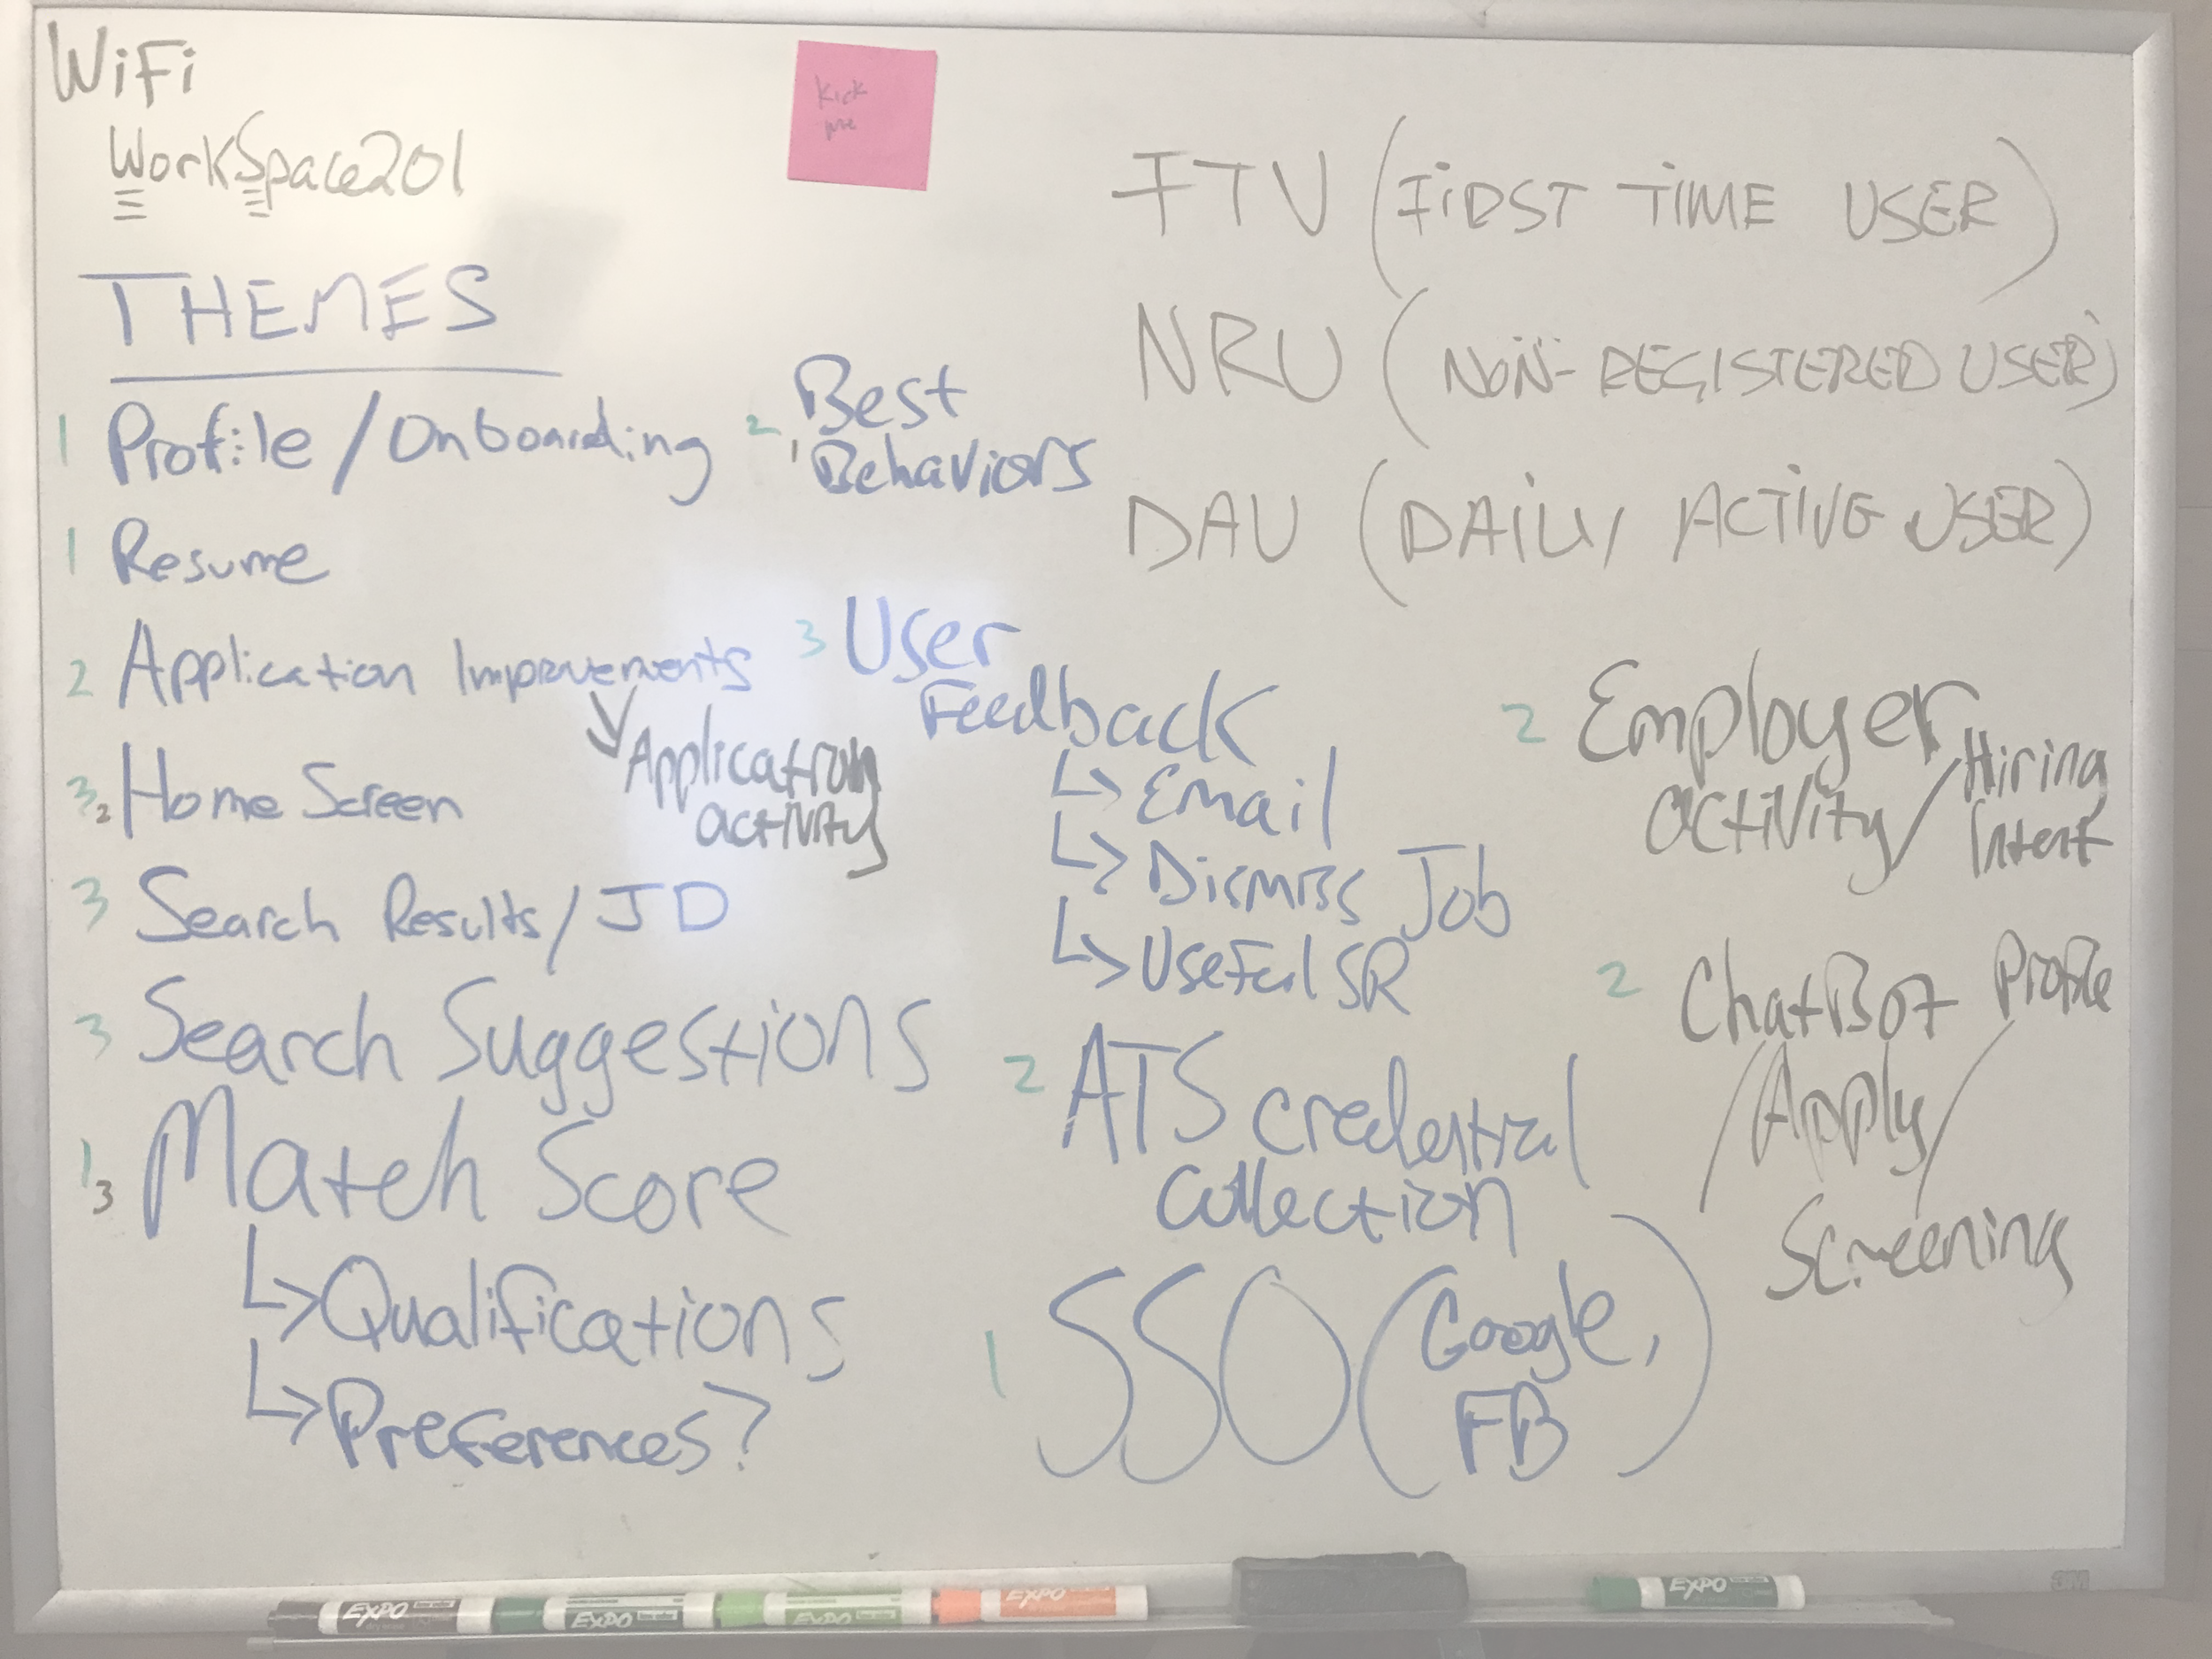 WiFi
WorkSpace201
Kick
me
THEMES
1 Profile / Onboarding
1 Resume
2 Application Improvements
Application
activity
3 2 Home Screen
3 Search Results / JD
3 Search Suggestions
1 3 Match Score
Qualifications
Preferences?
2 Best
Behaviors
3 User
Feedback
Email
Dismiss Job
Useful SR
2 ATS credential
collection
1 SSO (Google,
FB)
FTU (FIRST TIME USER)
NRU (NON-REGISTERED USER)
DAU (DAILY ACTIVE USER)
2 Employer
activity / Hiring
Intent
2 ChatBot Profile
/ Apply /
Screening
EXPO
EXPO
EXPO
EXPO
EXPO
3M